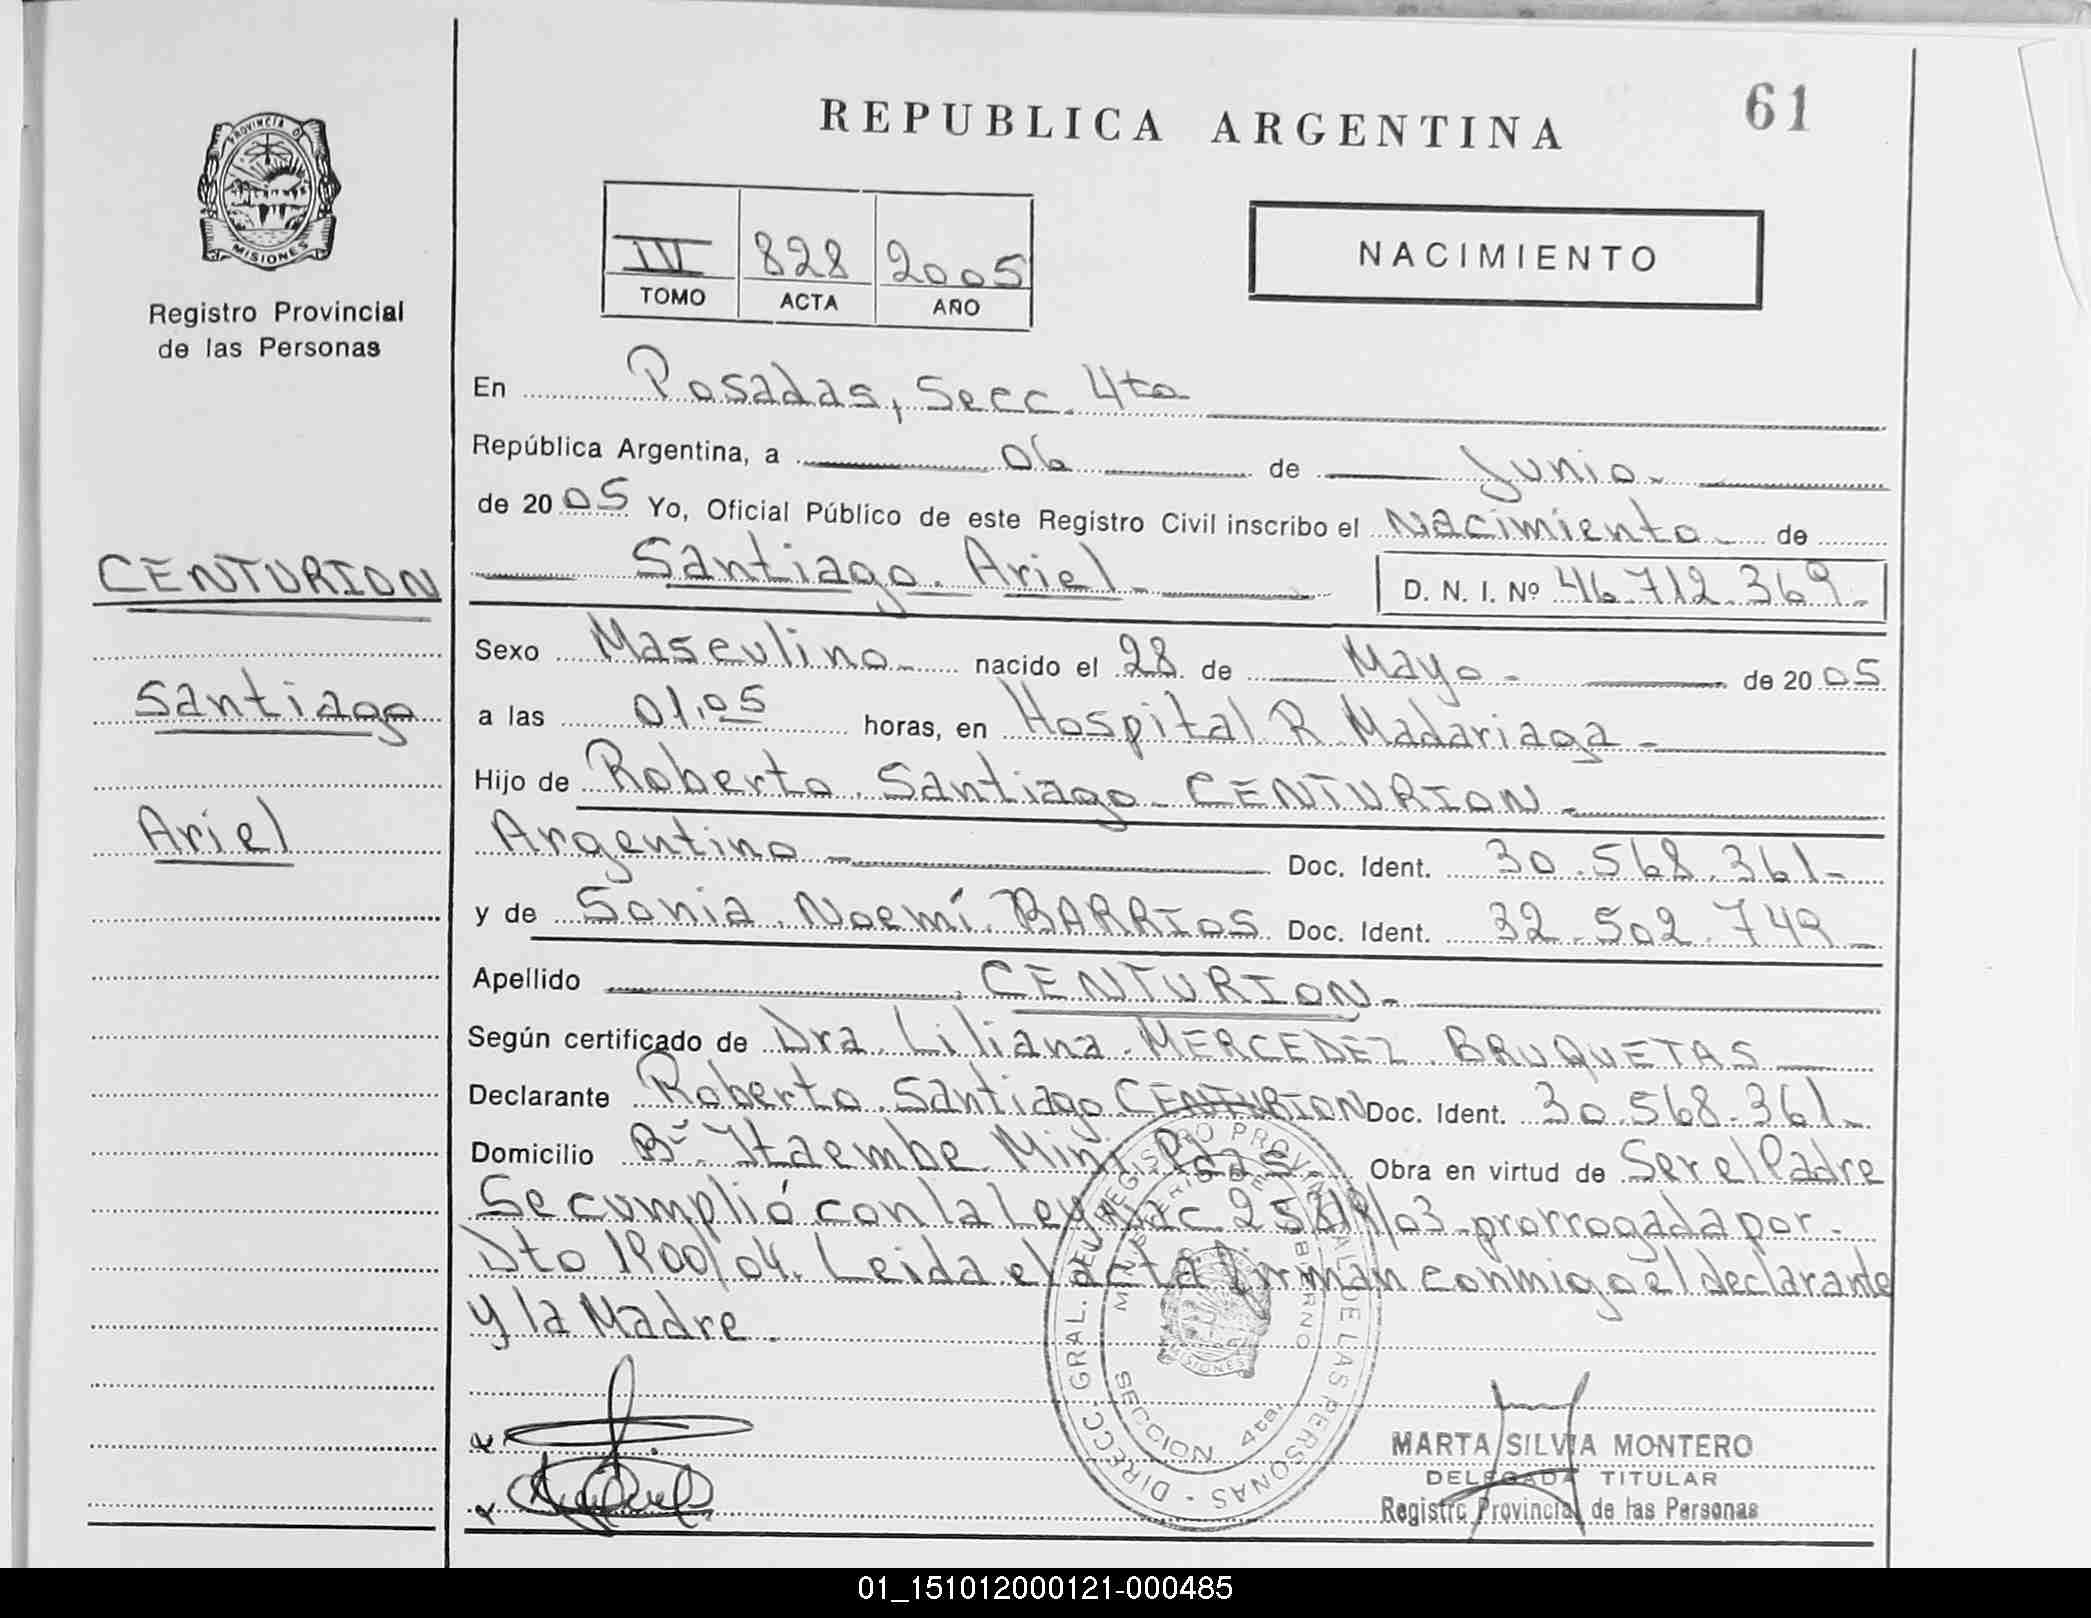 REPUBLICA ARGENTINA
61
PROVINCIA D
MISIONES
Registro Provincial
de las Personas
IV 828 2005
TOMO ACTA AÑO
NACIMIENTO
En Posadas, Secc. 4ta
República Argentina, a 06 de Junio.
de 2005 Yo, Oficial Público de este Registro Civil inscribo el Nacimiento de
Santiago Ariel D. N. I. Nº 46.712.369.
CENTURION
Santiago
Ariel
Sexo Masculino nacido el 28 de Mayo de 2005
a las 01,05 horas, en Hospital R. Madariaga
Hijo de Roberto Santiago CENTURION
Argentino Doc. Ident. 30.568.361
y de Sonia Noemí BARRIOS Doc. Ident. 32.502.749
Apellido CENTURION
Según certificado de Dra. Liliana MERCEDEZ BRUQUETAS
Declarante Roberto Santiago CENTURION Doc. Ident. 30.568.361
Domicilio Bº Itaembe Miní Pdas Obra en virtud de Ser el Padre
Se cumplió con la Ley Nac 25819/03 prorrogada por
Dto 1900/04. Leida el acta firman conmigo el declarante
y la Madre.
DIRECC. GRAL. DEL REGISTRO PROVINCIAL DE LAS PERSONAS
MINISTERIO DE GOBIERNO
SECCION 4ta.
MISIONES
MARTA SILVIA MONTERO
DELEGADA TITULAR
Registro Provincial de las Personas
01_151012000121-000485